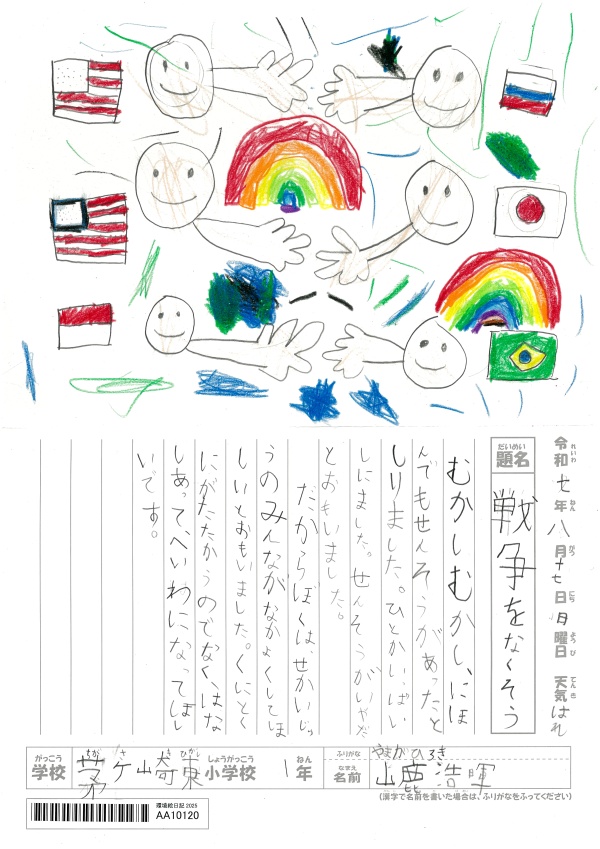 令和七年八月十七日日曜日 天気はれ
れいわ ねん がつ にち ようび てんき
だいめい
題名 戦争をなくそう
むかしむかし、にほ
んでもせんそうがあったと
しりました。ひとがいっぱい
しにました。せんそうがいやだ
とおもいました。
だからぼくは、せかいじゅ
うのみんながなかよくしてほ
しいとおもいました。くにとく
にがたたかうのでなく、はな
しあって、へいわになってほし
いです。
がっこう ちがさきひがし しょうがっこう ねん
学校 茅ケ崎東小学校 1年
ふりがな やまがひろき
なまえ
名前 山鹿浩暉
(漢字で名前を書いた場合は、ふりがなをふってください)
環境絵日記2025
AA10120